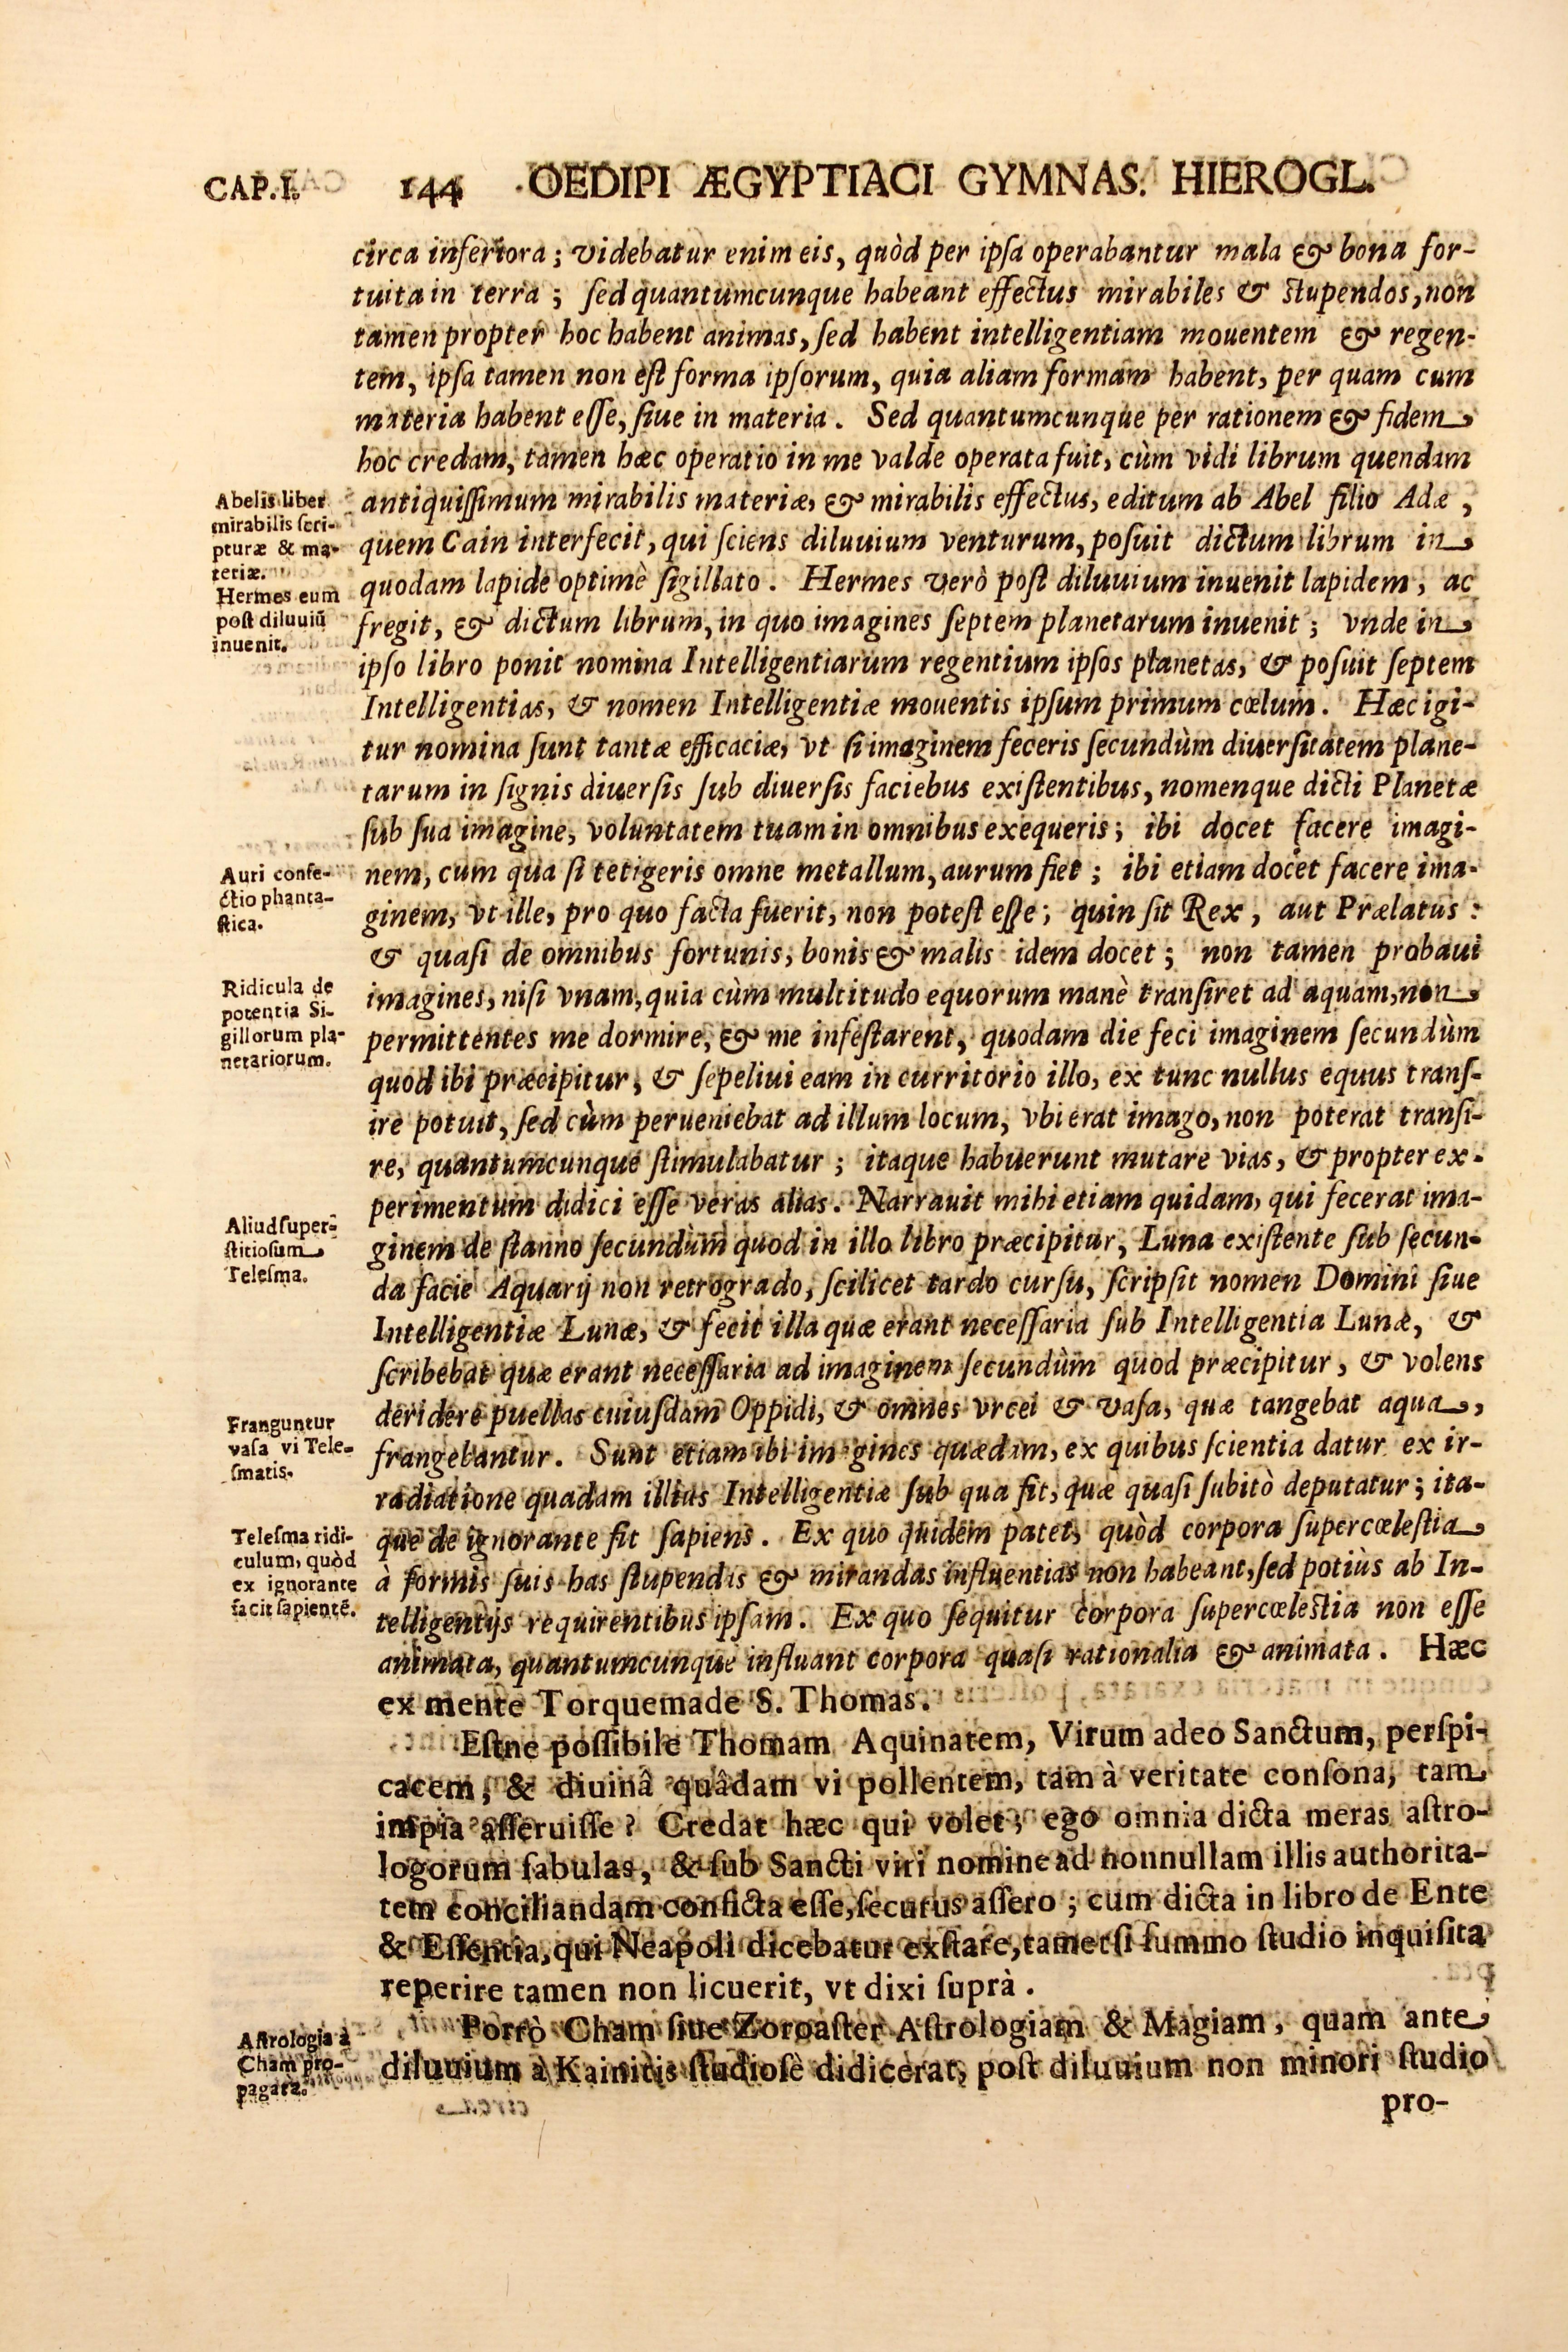 CAP. I. 144 OEDIPI ÆGYPTIACI GYMNAS. HIEROGL.
circa inferiora; videbatur enim eis, quòd per ipſa operabantur mala & bona for-
tuita in terra; ſed quantumcunque habeant effectus mirabiles & ſtupendos, non
tamen propter hoc habent animas, ſed habent intelligentiam mouentem & regen-
tem, ipſa tamen non eſt forma ipſorum, quia aliam formam habent, per quam cum
materia habent eſſe, ſiue in materia. Sed quantumcunque per rationem & fidem
hoc credam, tamen hæc operatio in me valde operata fuit, cùm vidi librum quendam
antiquiſſimum mirabilis materiæ, & mirabilis effectus, editum ab Abel filio Adæ,
quem Cain interfecit, qui ſciens diluuium venturum, poſuit dictum librum in
quodam lapide optimè ſigillato. Hermes verò poſt diluuium inuenit lapidem, ac
fregit, & dictum librum, in quo imagines ſeptem planetarum inuenit; vnde in
ipſo libro ponit nomina Intelligentiarum regentium ipſos planetas, & poſuit ſeptem
Intelligentias, & nomen Intelligentiæ mouentis ipſum primum cœlum. Hæc igi-
tur nomina ſunt tantæ efficaciæ, vt ſi imaginem feceris ſecundùm diuerſitatem plane-
tarum in ſignis diuerſis ſub diuerſis faciebus exiſtentibus, nomenque dicti Planetæ
ſub ſua imagine, voluntatem tuam in omnibus exequeris; ibi docet facere imagi-
nem, cum qua ſi tetigeris omne metallum, aurum fiet; ibi etiam docet facere ima-
ginem, vt ille, pro quo facta fuerit, non poteſt eſſe; quin ſit Rex, aut Prælatus:
& quaſi de omnibus fortunis, bonis & malis idem docet; non tamen probaui
imagines, niſi vnam, quia cùm multitudo equorum manè tranſiret ad aquam, non
permittentes me dormire, & me infeſtarent, quodam die feci imaginem ſecundùm
quod ibi præcipitur, & ſepeliui eam in curritorio illo, ex tunc nullus equus tranſ-
ire potuit, ſed cùm perueniebat ad illum locum, vbi erat imago, non poterat tranſi-
re, quantumcunque ſtimulabatur; itaque habuerunt mutare vias, & propter ex-
perimentum didici eſſe veras alias. Narrauit mihi etiam quidam, qui fecerat ima-
ginem de ſtanno ſecundùm quod in illo libro præcipitur, Luna exiſtente ſub ſecun-
da facie Aquarij non retrogrado, ſcilicet tardo curſu, ſcripſit nomen Domini ſiue
Intelligentiæ Lunæ, & fecit illa quæ erant neceſſaria ſub Intelligentia Lunæ, &
ſcribebat quæ erant neceſſaria ad imaginem ſecundùm quod præcipitur, & volens
deridere puellas cuiuſdam Oppidi, & omnes vrcei & vaſa, quæ tangebat aqua,
frangebantur. Sunt etiam ibi imagines quædam, ex quibus ſcientia datur ex ir-
radiatione quadam illius Intelligentiæ ſub qua fit, quæ quaſi ſubitò deputatur; ita-
que de ignorante fit ſapiens. Ex quo quidem patet, quòd corpora ſupercœleſtia
à formis ſuis has ſtupendas & mirandas influentias non habeant, ſed potiùs ab In-
telligentijs requirentibus ipſam. Ex quo ſequitur corpora ſupercœleſtia non eſſe
animata, quantumcunque influant corpora quaſi rationalia & animata. Hæc
ex mente Torquemade S. Thomas.
Eſtne poſſibile Thomam Aquinatem, Virum adeo Sanctum, perſpi-
cacem, & diuinâ quâdam vi pollentem, tam à veritate conſona, tam
impia aſſeruiſſe? Credat hæc qui volet; ego omnia dicta meras aſtro-
logorum fabulas, & ſub Sancti viri nomine ad nonnullam illis authorita-
tem conciliandam conficta eſſe, ſecutus aſſero; cum dicta in libro de Ente
& Eſſentia, qui Neapoli dicebatur exſtare, tametſi ſummo ſtudio inquiſita
reperire tamen non licuerit, vt dixi ſuprà.
Porrò Cham ſiue Zoroaſter Aſtrologiam & Magiam, quam ante
diluuium à Kainitis ſtudioſè didicerat, poſt diluuium non minori ſtudio
pro-
Abelis liber
mirabilis ſcri-
pturæ & ma-
teriæ.
Hermes eum
poſt diluuiũ
inuenit.
Auri confe-
ctio phanta-
ſtica.
Ridicula de
potentia Si-
gillorum pla-
netariorum.
Aliud ſuper-
ſtitioſum
Teleſma.
Franguntur
vaſa vi Tele-
ſmatis.
Teleſma ridi-
culum, quòd
ex ignorante
facit ſapientẽ.
Aſtrologia à
Cham pro-
pagata.